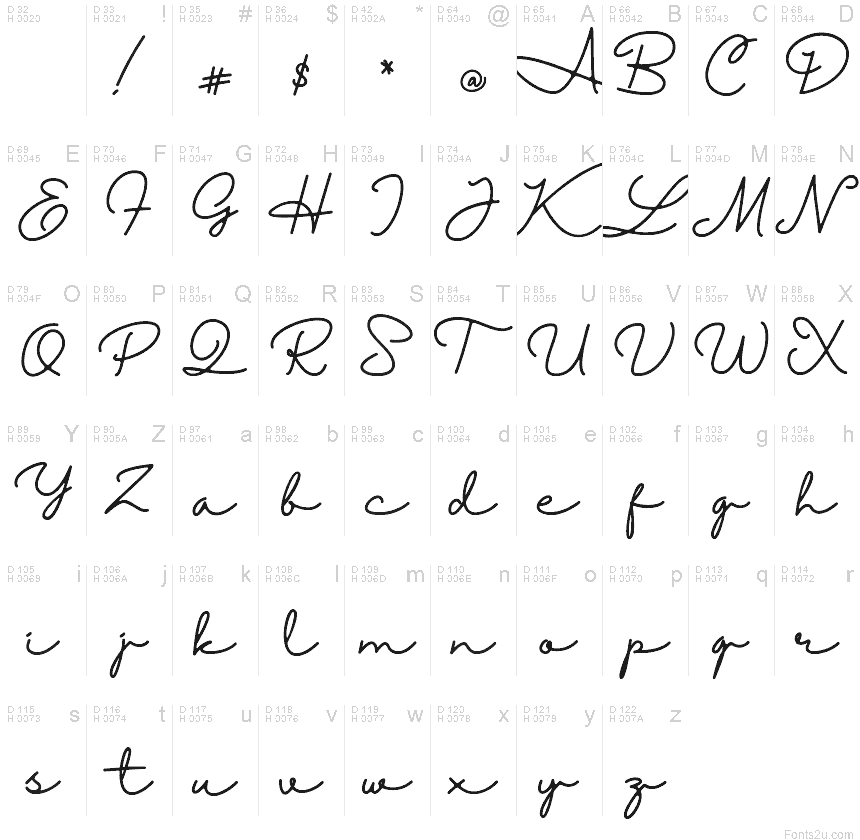 D 32 H 0020 D 33 H 0021 ! D 35 H 0023 # D 36 H 0024 $ D 42 H 002A * D 64 H 0040 @ D 65 H 0041 A D 66 H 0042 B D 67 H 0043 C D 68 H 0044 D
! # $ * @ A B C D
D 69 H 0045 E D 70 H 0046 F D 71 H 0047 G D 72 H 0048 H D 73 H 0049 I D 74 H 004A J D 75 H 004B K D 76 H 004C L D 77 H 004D M D 78 H 004E N
E F G H I J K L M N
D 79 H 004F O D 80 H 0050 P D 81 H 0051 Q D 82 H 0052 R D 83 H 0053 S D 84 H 0054 T D 85 H 0055 U D 86 H 0056 V D 87 H 0057 W D 88 H 0058 X
O P Q R S T U V W X
D 89 H 0059 Y D 90 H 005A Z D 97 H 0061 a D 98 H 0062 b D 99 H 0063 c D 100 H 0064 d D 101 H 0065 e D 102 H 0066 f D 103 H 0067 g D 104 H 0068 h
Y Z a b c d e f g h
D 105 H 0069 i D 106 H 006A j D 107 H 006B k D 108 H 006C l D 109 H 006D m D 110 H 006E n D 111 H 006F o D 112 H 0070 p D 113 H 0071 q D 114 H 0072 r
i j k l m n o p q r
D 115 H 0073 s D 116 H 0074 t D 117 H 0075 u D 118 H 0076 v D 119 H 0077 w D 120 H 0078 x D 121 H 0079 y D 122 H 007A z
s t u v w x y z
Fonts2u.com